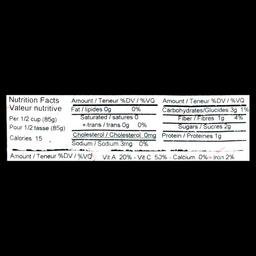 Nutrition Facts
Valeur nutritive
Per 1/2 cup (85g)
Pour 1/2 tasse (85g)
Calories 15
Amount / Teneur %DV / %VQ
Fat / lipides 0g 0%
Saturated / saturés 0
+-trans / trans 0g 0%
Cholesterol / Cholesterol 0mg
Sodium / Sodium 3mg 0%
Amount / Teneur %DV / %VQ
Carbohydrates/Glucides 3g 1%
Fiber / Fibres 1g 4%
Sugars / Sucres 2g
Protein / Protéines 1g
Amount / Teneur %DV / %VQ Vit A 20% - Vit C 50% - Calcium 0% - Iron 2%